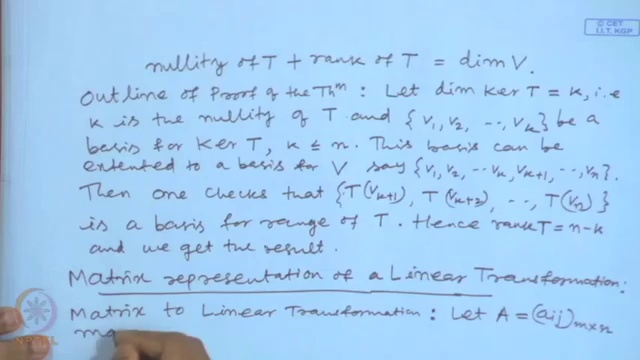 © CET
I.I.T. KGP
nullity of T + rank of T = dim V.
Outline of Proof of the Thm : Let dim Ker T = k, i.e
k is the nullity of T and {v1, v2, ..., vk} be a
basis for Ker T, k ≤ n. This basis can be
extented to a basis for V say {v1, v2, ... vk, vk+1, ..., vn}.
Then one checks that {T(vk+1), T(vk+2), ..., T(vn)}
is a basis for range of T. Hence rank T = n-k
and we get the result.
Matrix representation of a Linear Transformation:
Matrix to Linear Transformation : Let A = (aij)m×n
ma